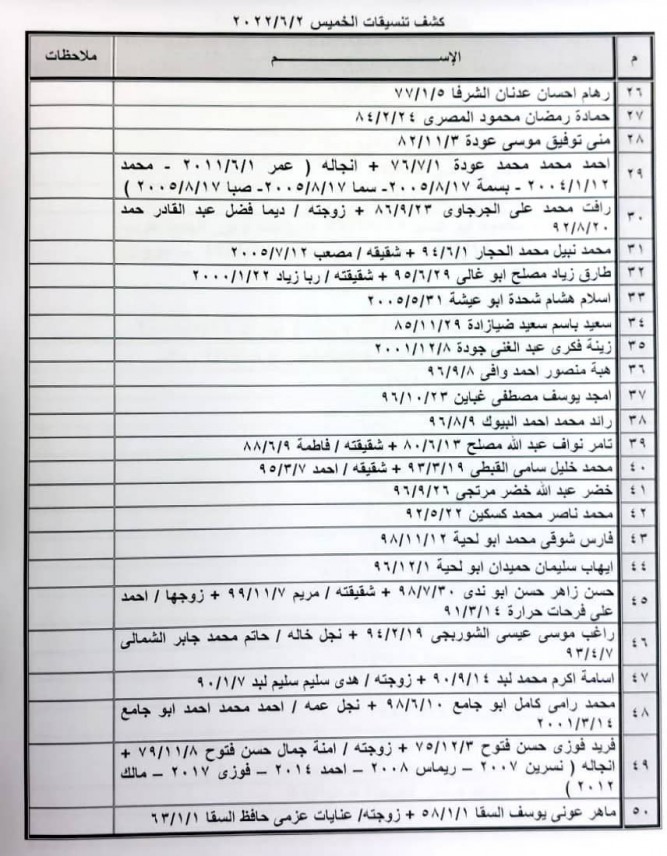 كشف تنسيقات الخميس ٢٠٢٢/٦/٢
م الإســـــــم ملاحظات
٢٦ رهام احسان عدنان الشرفا ٧٧/١/٥
٢٧ حمادة رمضان محمود المصرى ٨٤/٢/٢٤
٢٨ منى توفيق موسى عودة ٨٢/١١/٣
٢٩ احمد محمد محمد عودة ٧٦/٧/١ + انجاله ( عمر ٢٠١١/٦/١ - محمد
٢٠٠٤/١/١٢ - بسمة ٢٠٠٥/٨/١٧- سما ٢٠٠٥/٨/١٧- صبا ٢٠٠٥/٨/١٧ )
٣٠ رافت محمد على الجرجاوى ٨٦/٩/٢٣ + زوجته / ديما فضل عبد القادر حمد
٩٢/٨/٢٠
٣١ محمد نبيل محمد الحجار ٩٤/٦/١ + شقيقه / مصعب ٢٠٠٥/٧/١٢
٣٢ طارق زياد مصلح ابو غالى ٩٥/٦/٢٩ + شقيقته / ربا زياد ٢٠٠٠/١/٢٢
٣٣ اسلام هشام شحدة ابو عيشة ٢٠٠٥/٥/٣١
٣٤ سعيد باسم سعيد ضبازادة ٨٥/١١/٢٩
٣٥ زينة فكرى عبد الغنى جودة ٢٠٠١/١٢/٨
٣٦ هبة منصور احمد وافى ٩٦/٩/٨
٣٧ امجد يوسف مصطفى غباين ٩٦/١٠/٢٣
٣٨ رائد محمد احمد البيوك ٩٦/٨/٩
٣٩ تامر نواف عبد الله مصلح ٨٠/٦/١٣ + شقيقته / فاطمة ٨٨/٦/٩
٤٠ محمد خليل سامى القبطى ٩٣/٣/١٩ + شقيقه / احمد ٩٥/٣/٧
٤١ خضر عبد الله خضر مرتجى ٩٦/٩/٢٦
٤٢ محمد ناصر محمد كسكين ٩٢/٥/٢٢
٤٣ فارس شوقى محمد ابو لحية ٩٨/١١/١٢
٤٤ ايهاب سليمان حميدان ابو لحية ٩٦/١٢/١
٤٥ حسن زاهر حسن ابو ندى ٩٨/٧/٣٠ + شقيقته / مريم ٩٩/١١/٧ + زوجها / احمد
على فرحات حرارة ٩١/٣/١٤
٤٦ راغب موسى عيسى الشوربجى ٩٤/٢/١٩ + نجل خاله / حاتم محمد جابر الشمالى
٩٣/٤/٧
٤٧ اسامة اكرم محمد لبد ٩٠/٩/١٤ + زوجته / هدى سليم سليم لبد ٩٠/١/٧
٤٨ محمد رامى كامل ابو جامع ٩٨/٦/١٠ + نجل عمه / احمد محمد احمد ابو جامع
٢٠٠١/٣/١٤
٤٩ فريد فوزى حسن فتوح ٧٥/١٢/٣ + زوجته / امنة جمال حسن فتوح ٧٩/١١/٨ +
انجاله ( نسرين ٢٠٠٧ – ريماس ٢٠٠٨ – احمد ٢٠١٤ – فوزى ٢٠١٧ – مالك
٢٠١٢ )
٥٠ ماهر عونى يوسف السقا ٥٨/١/١ + زوجته/ عنايات عزمى حافظ السقا ٦٣/١/١